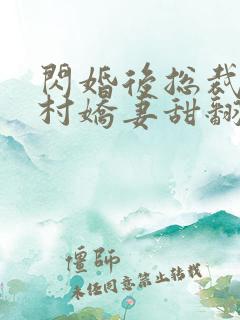 閃婚後總裁
村嬌妻甜翻
僵師
未任同意禁止轉載